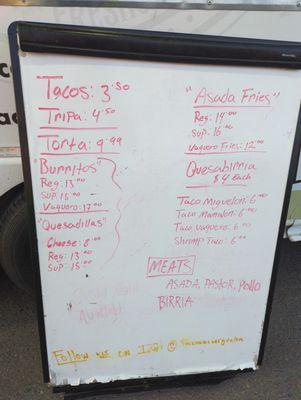 Tacos: 3.50
Tripa: 4.50
Torta: 9.99
"Burritos"
Reg: 13.00
Sup: 15.00
Vaquero: 17.00
"Quesadillas"
Cheese: 8.00
Reg: 13.00
Sup: 15.00
"Asada Fries"
Reg: 14.00
Sup: 16.00
Vaquero Fries: 12.00
Quesabirria
$4 each
Taco Miguelon: 6.00
Taco Mamalon: 6.00
Taco Vaquero: 6.00
Shrimp Taco: 6.00
MEATS
ASADA, PASTOR, Pollo
BIRRIA
Follow us on IG: @